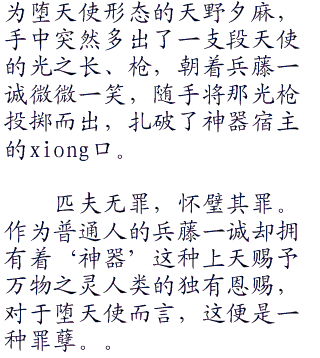 为堕天使形态的天野夕麻，
手中突然多出了一支段天使
的光之长、枪，朝着兵藤一
诚微微一笑，随手将那光枪
投掷而出，扎破了神器宿主
的xiong口。
匹夫无罪，怀璧其罪。
作为普通人的兵藤一诚却拥
有着‘神器’这种上天赐予
万物之灵人类的独有恩赐，
对于堕天使而言，这便是一
种罪孽。。